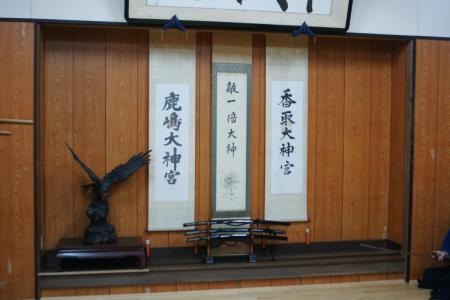 香取大神宮
敵一倍大神
鹿嶋大神宮